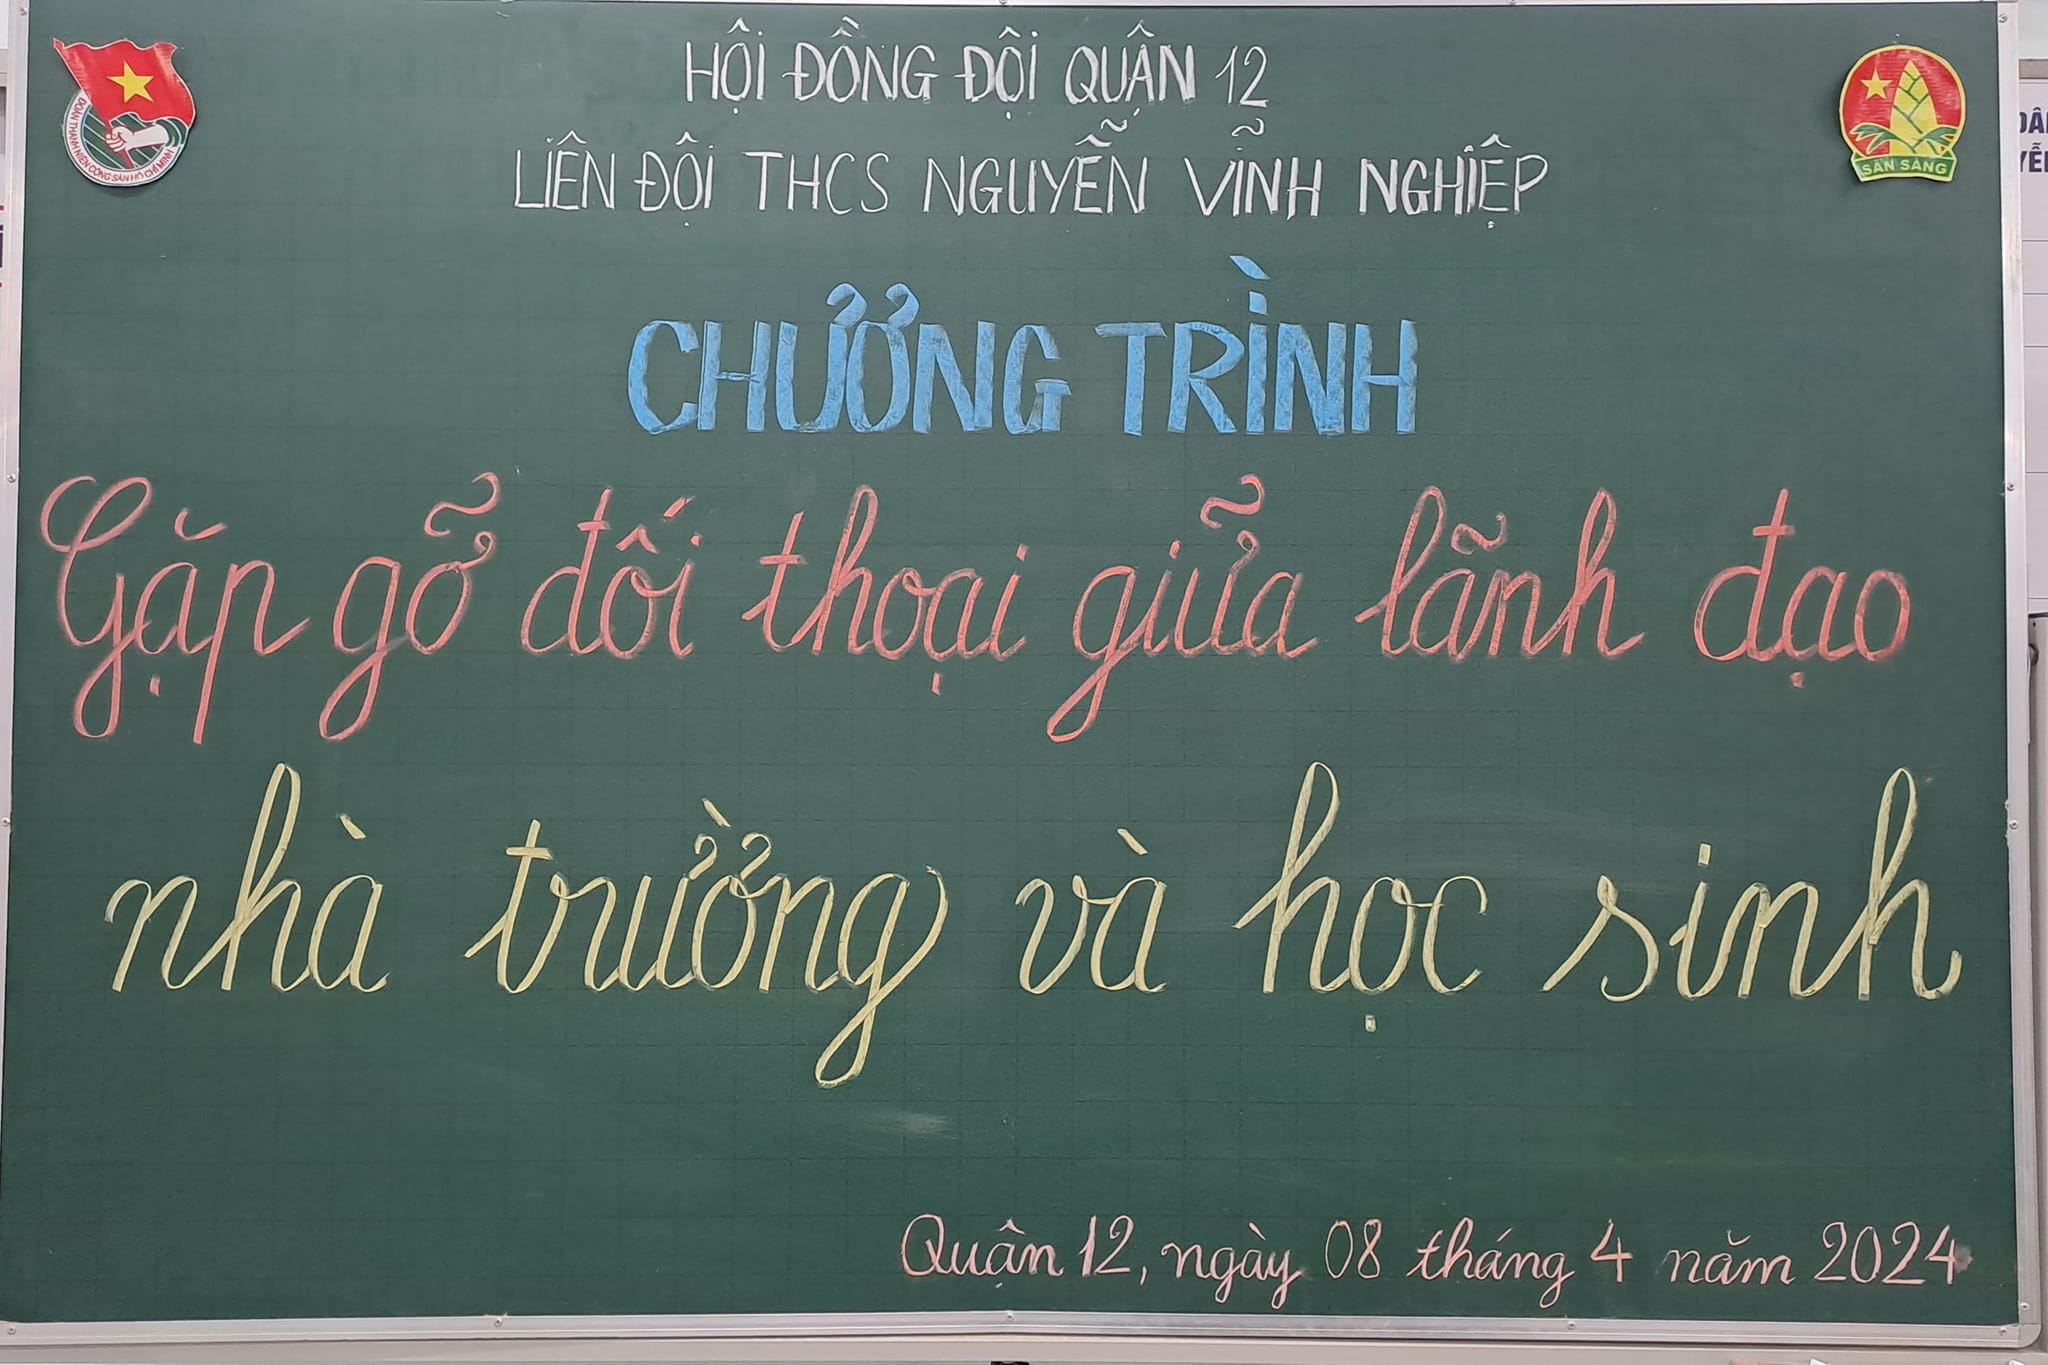 HỘI ĐỒNG ĐỘI QUẬN 12
LIÊN ĐỘI THCS NGUYỄN VĨNH NGHIỆP
CHƯƠNG TRÌNH
Gặp gỡ đối thoại giữa lãnh đạo
nhà trường và học sinh
Quận 12, ngày 08 tháng 4 năm 2024
ĐOÀN THANH NIÊN CỘNG SẢN HỒ CHÍ MINH
SẴN SÀNG